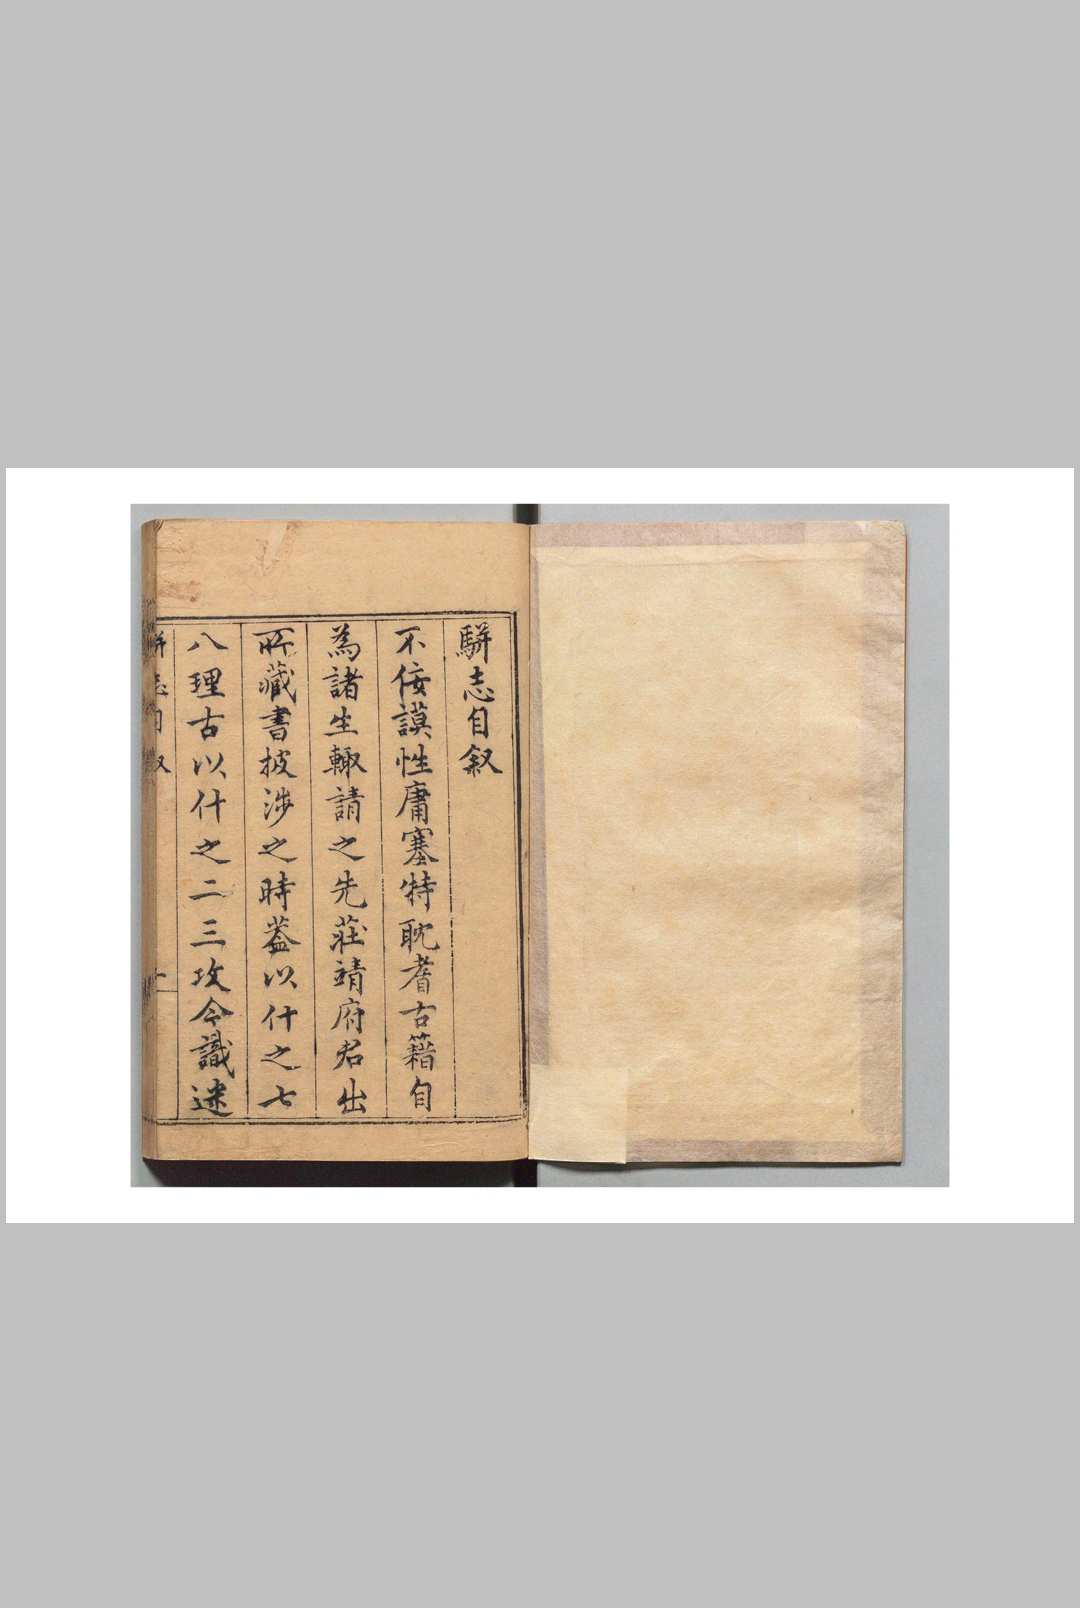 駢志自叙
不佞謨性庸塞特耽耆古籍自
為諸生輙請之先莊靖府君出
所藏書披涉之時葢以什之七
八理古以什之二三攻今識迷
駢志自叙